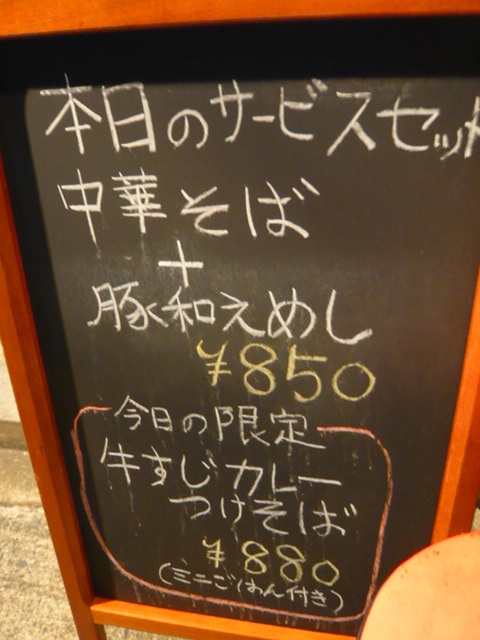 本日のサービスセット
中華そば
+
豚和えめし
¥850
今日の限定
牛すじカレー
つけそば
¥880
(ミニごはん付き)